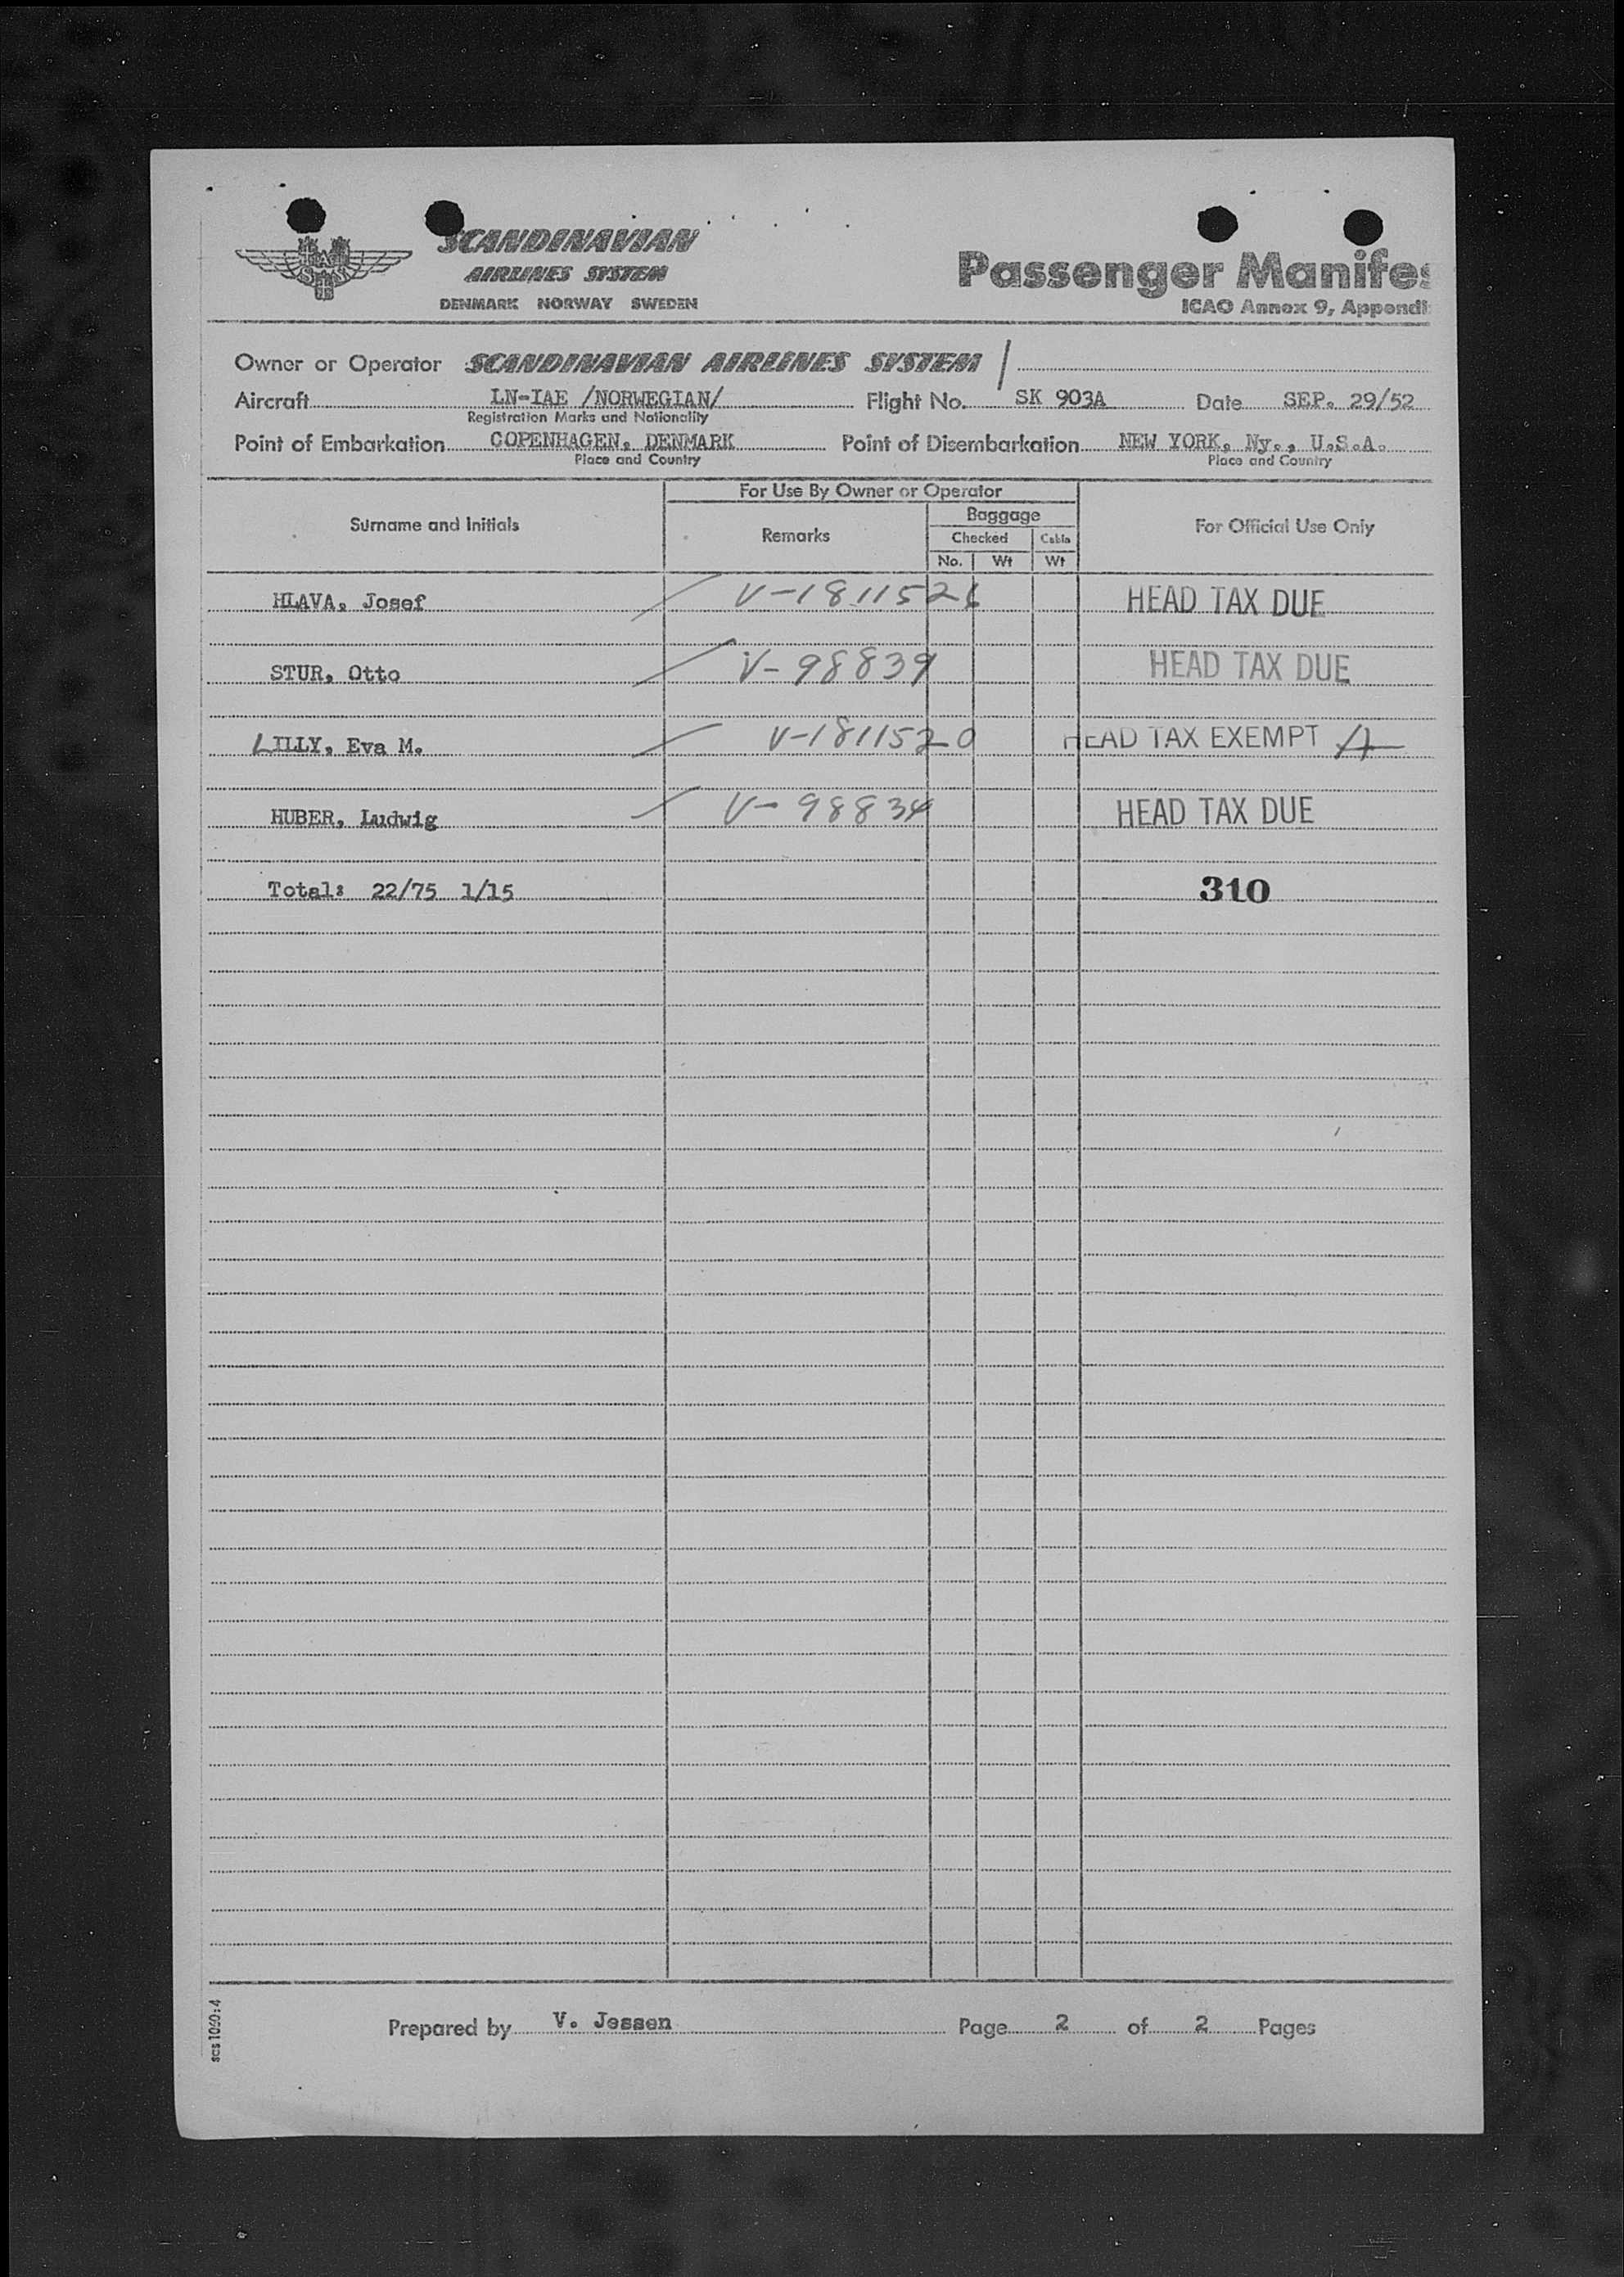 SCANDINAVIAN
AIRLINES SYSTEM
DENMARK NORWAY SWEDEN
SAS
Passenger Manifes
ICAO Annex 9, Appendi
Owner or Operator SCANDINAVIAN AIRLINES SYSTEM /
Aircraft LN-IAE /NORWEGIAN/ Flight No. SK 903A Date SEP. 29/52
Registration Marks and Nationality
Point of Embarkation COPENHAGEN, DENMARK Point of Disembarkation NEW YORK, Ny., U.S.A.
Place and Country Place and Country
Surname and Initials For Use By Owner or Operator For Official Use Only
Remarks Baggage
Checked Cabin
No. Wt Wt
HLAVA, Josef V-1811526 HEAD TAX DUE
STUR, Otto V-98839 HEAD TAX DUE
LILLY, Eva M. V-1811520 HEAD TAX EXEMPT A
HUBER, Ludwig V-98834 HEAD TAX DUE
Total: 22/75 1/15 310
Prepared by V. Jessen Page 2 of 2 Pages
scs 1060:4